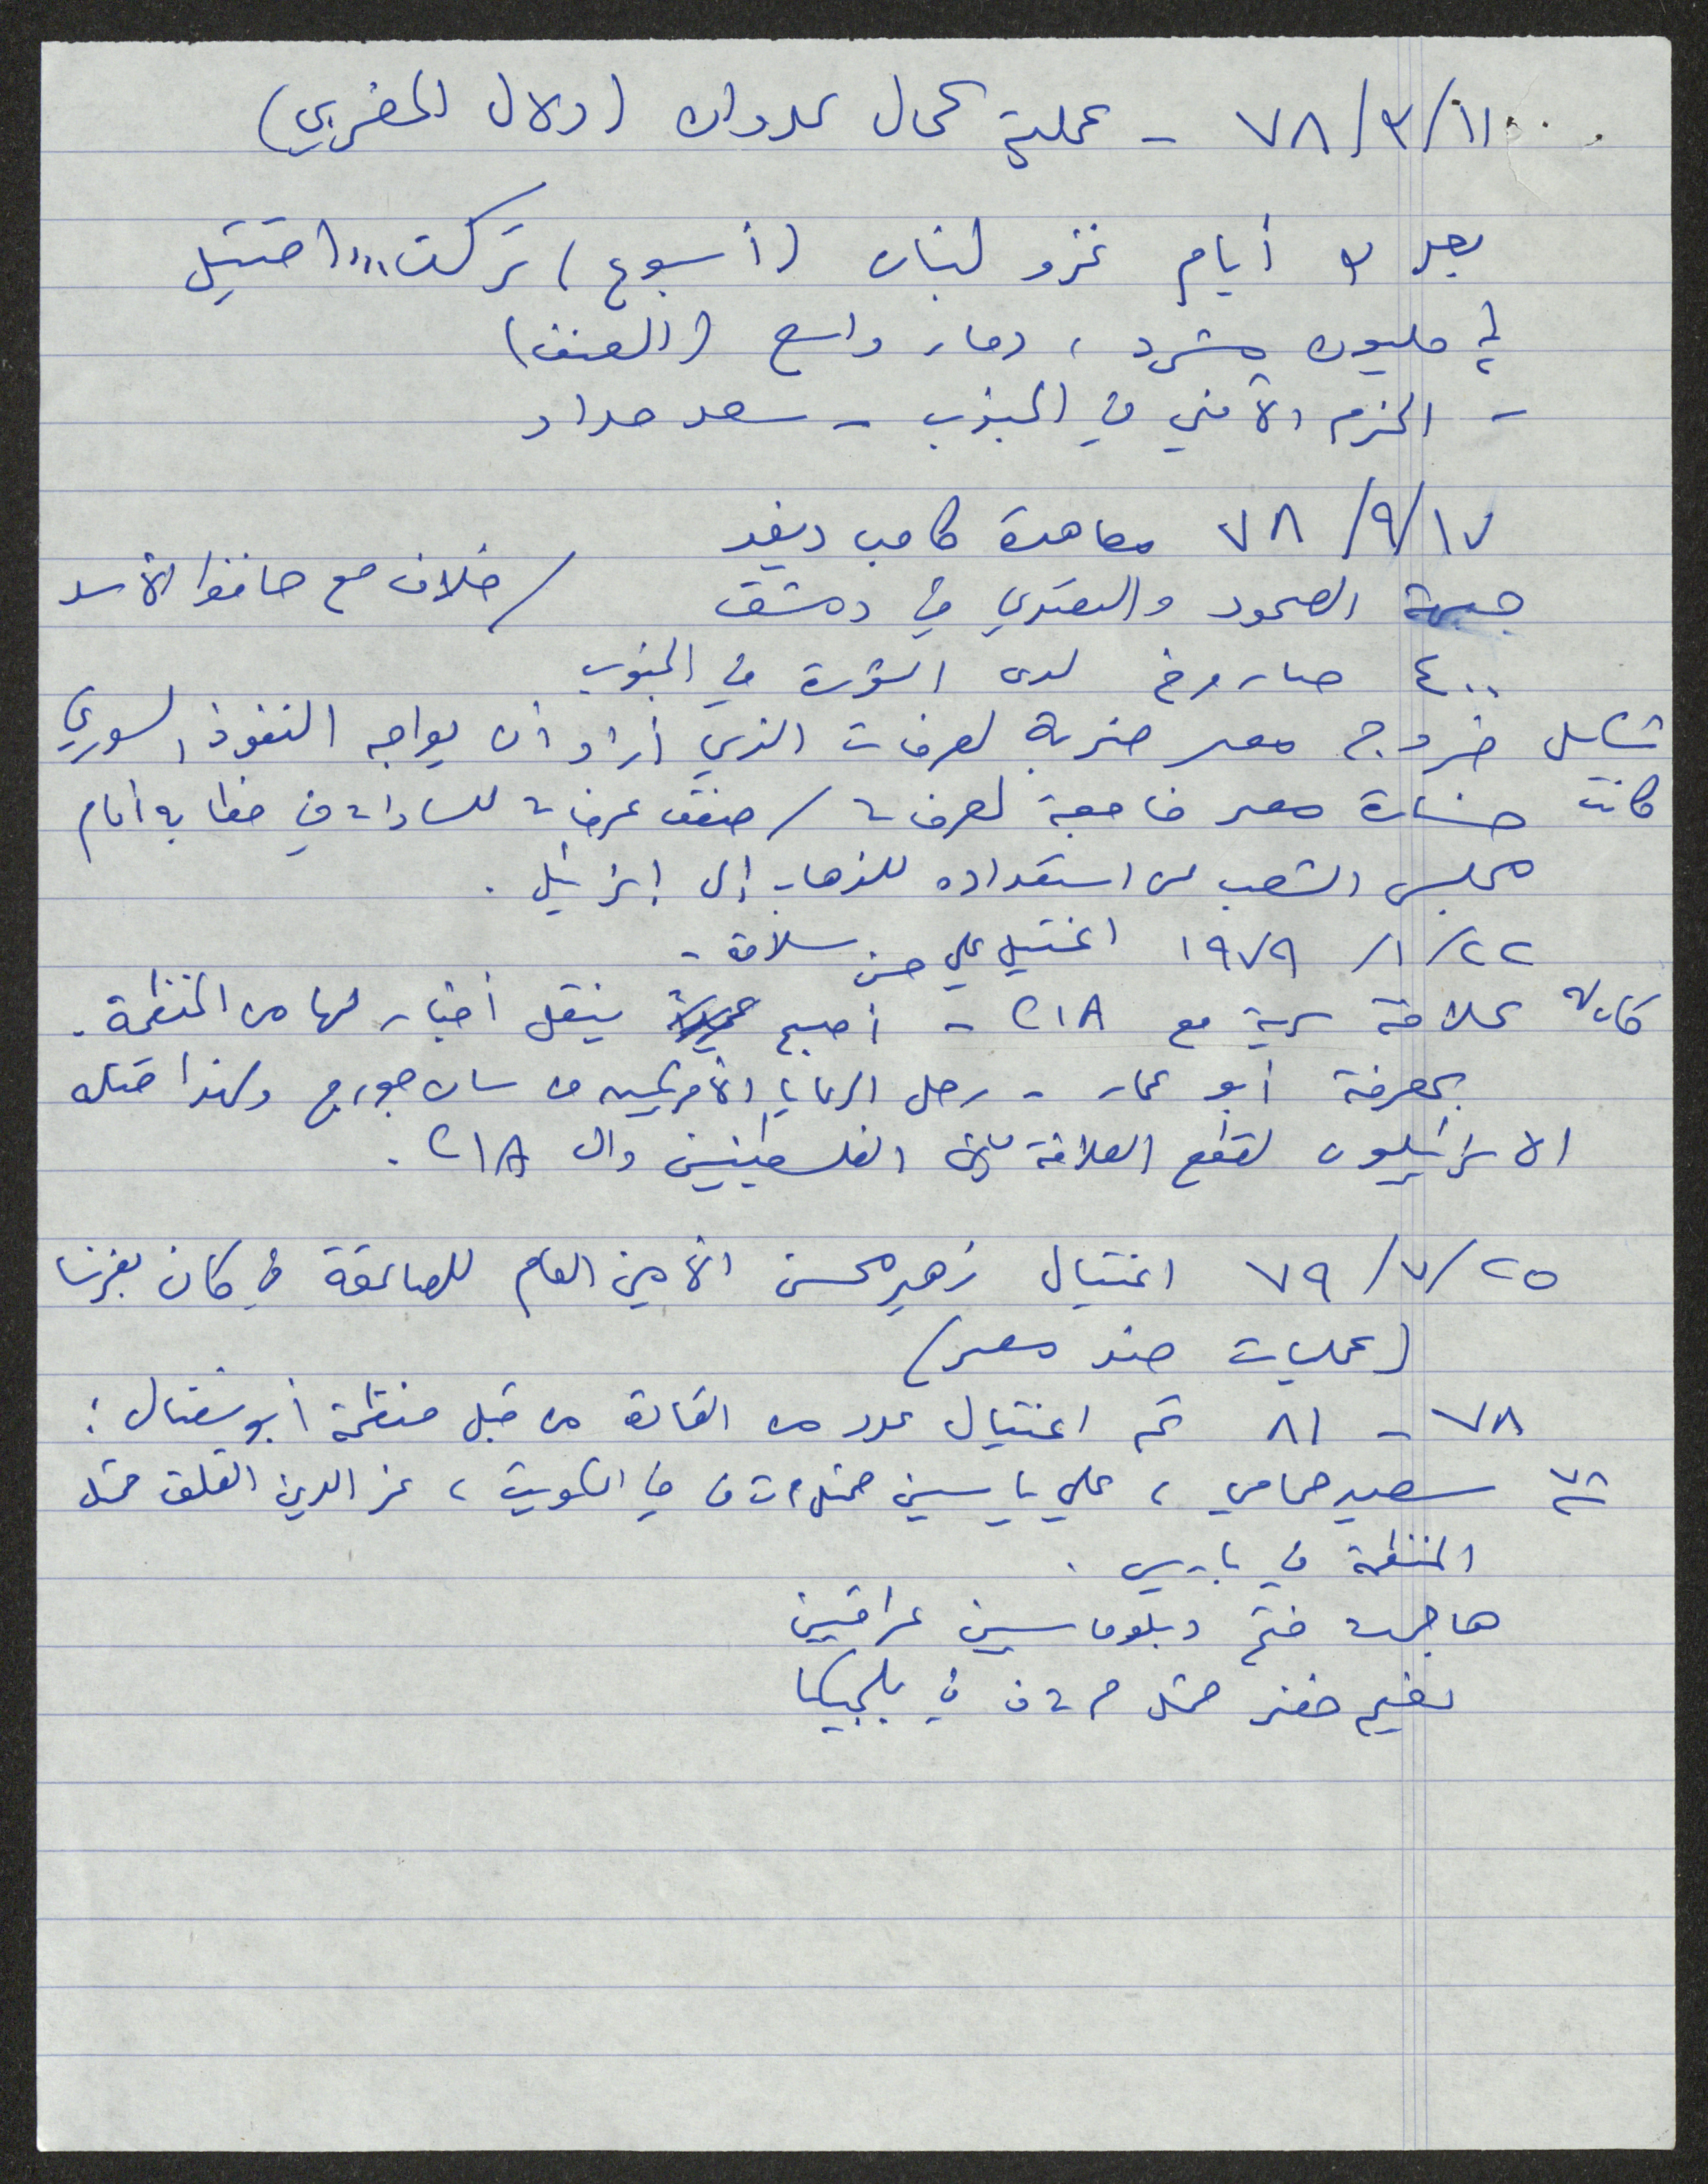 ١١/٣/٧٨ - عملية كمال عدوان (دلال المغربي)
بعد ٣ أيام غزو لبنان (أسبوع) تركت ١٠٠٠ قتيل
¼ مليون مشرد، دمار واسع (العنف)
- الحزم الأمني في الجنوب - سعد حداد
١٧/٩/٧٨ معاهدة كامب ديفد
جبهة الصمود والتصدي في دمشق / خلاف مع حافظ الأسد
٤٠٠ صاروخ لدى الثورة في الجنوب
شكل خروج مصر ضربة لعرفات الذي أراد أن يواجه النفوذ السوري
كانت خسارة مصر فاجعة لعرفات / صفق عرفات للسادات في خطابه أمام
مجلس الشعب عن استعداده للذهاب إلى إسرائيل.
٢٢/١/١٩٧٩ اغتيل علي حسن سلامة -
كان له علاقة سرية مع CIA - أصبح ينقل أخبار لها من المنظمة.
بمعرفة أبو عمار - رحل الرعايا الأمريكيين من سان جورج ولهذا قتله
الاسرائيليون لقطع العلاقة بين الفلسطينيين وال CIA.
٢٥/٧/٧٩ اغتيال زهير محسن الأمين العام للصاعقة في كان بفرنسا
(عمليات ضد مصر)
٧٨ - ٨١ تم اغتيال عدد من القادة من قبل منظمة أبو نضال:
٧٨ سعيد حمامي، علي ياسين ممثل م ت ف في الكويت، عز الدين القلق ممثل
المنظمة في باريس.
هاجمت فتح دبلوماسيين عراقيين
نعيم خضر ممثل م ت ف في بلجيكا